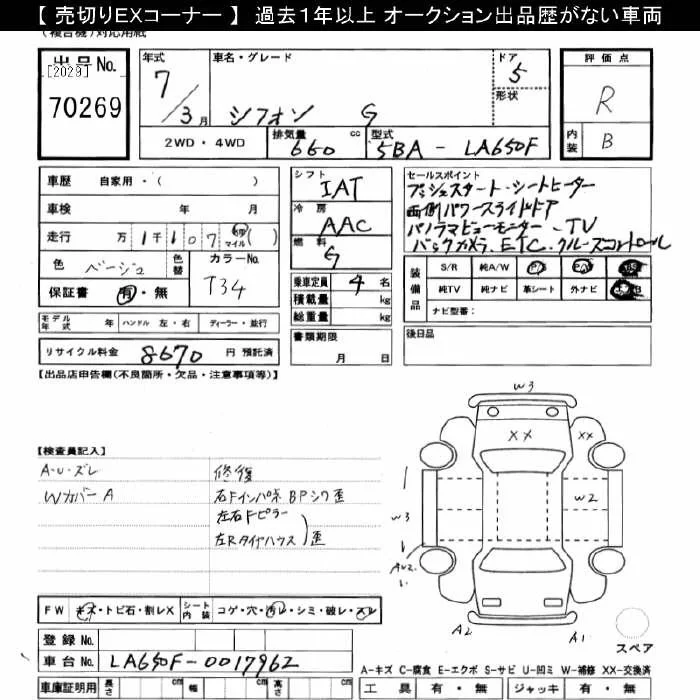 【 売切りEXコーナー 】 過去1年以上 オークション出品歴がない車両
(複合機)対応用紙
出品 No.
[2029]
70269
年式
7/3月
車名・グレード
シフォン G
ドア
5
形状
評価点
R
内装
B
2WD・4WD
排気量 660 cc
型式 5BA - LA650F
車歴 自家用・( )
車検 年 月
走行 万 1千 1 0 7 km マイル ( )
色 ベージュ
色替
カラーNo. T34
保証書 有・無
シフト IAT
冷房 AAC
燃料 G
乗車定員 4 名
積載量 kg
総重量 kg
書類期限
月 日
セールスポイント
プッシュスタート・シートヒーター
両側パワースライドドア
パノラマビューモニター・TV
バックカメラ、ETC、クルーズコントロール
装備品
S/R 純A/W P/S P/W
純TV 純ナビ 革シート 外ナビ
ナビ型番:
モデル年式 年 ハンドル 左・右 ディーラー・並行
リサイクル料金 8670 円 預託済
後日品
【出品店申告欄(不良箇所・欠品・注意事項等)】
【検査員記入】
A・U・ズレ
Wカバー A
修復
右Fインパネ BPシワ歪
左右Fピラー
左Rタイヤハウス 歪
W3
XX
XX
W3
W2
AU2
1
A2
A1
スペア
FW キズ・トビ石・割レX
シート内装 コゲ・穴・汚レ・シミ・破レ・スレ
登録 No.
車台 No. LA650F-0017962
車庫証明用 長さ cm 幅 cm 高さ cm
A-キズ C-腐食 E-エクボ S-サビ U-凹ミ W-補修 XX-交換済
工具 有・無 ジャッキ 有・無